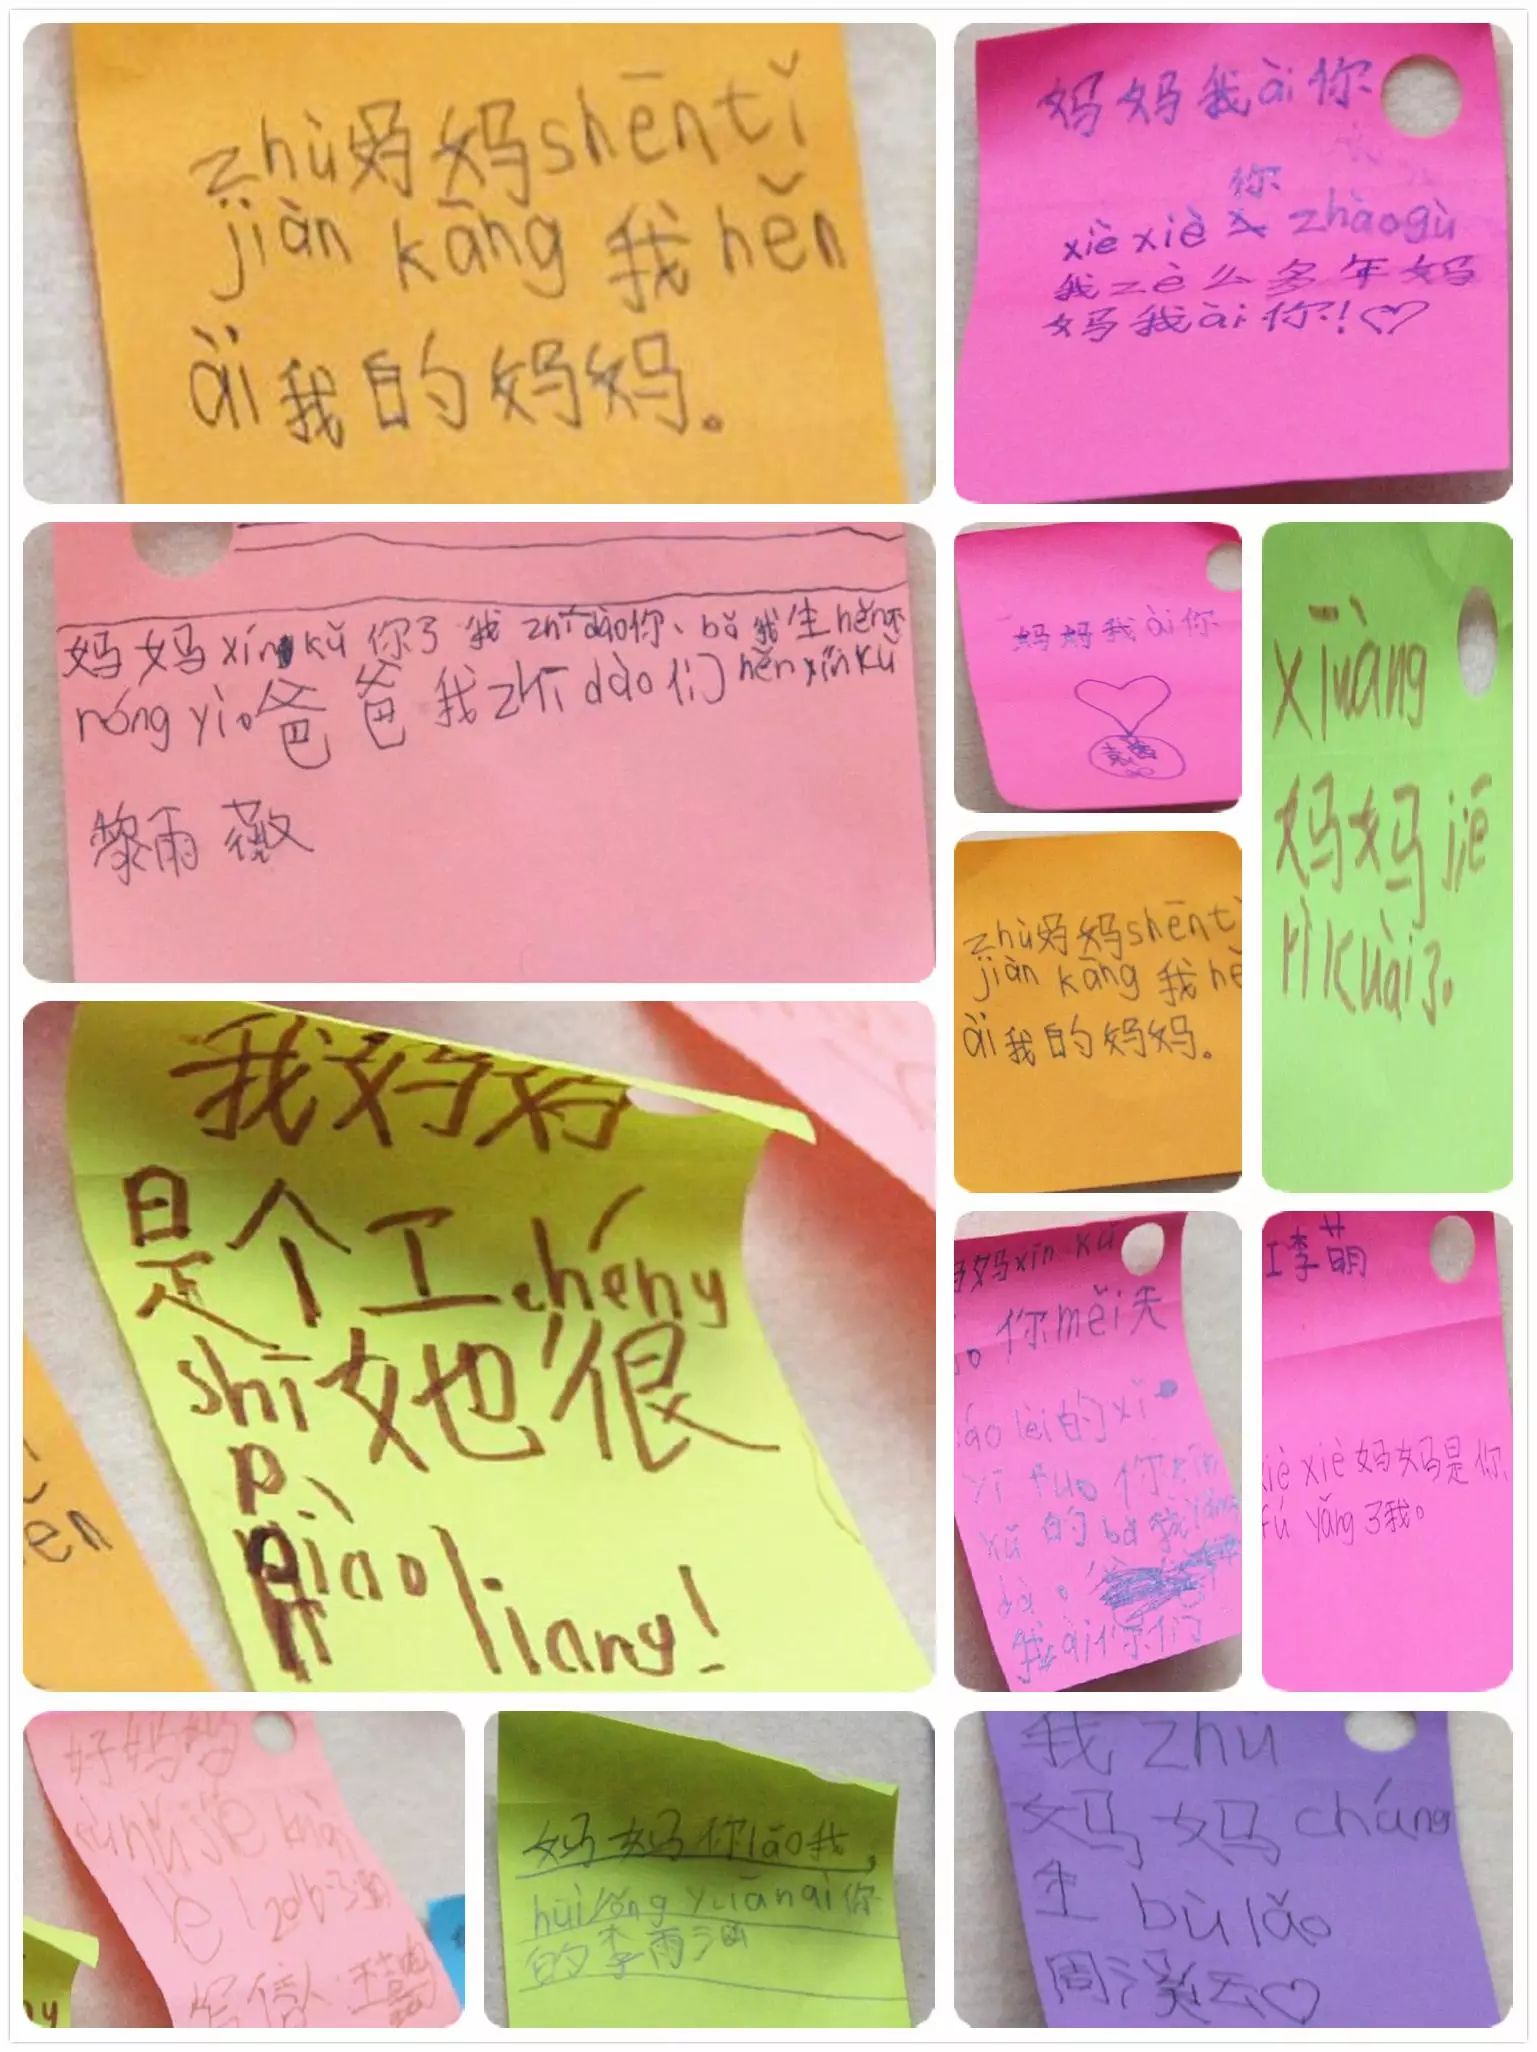 zhù妈妈shēntǐ
jiàn kāng 我hěn
ài我的妈妈。
妈妈我ài你
你
xiè xiè zhàogù
我zè么多年妈
妈我ài你!
妈妈xīnkǔ你了我zhīdào你、bǎ我生hěn不
róng yì。爸爸我zhī dào们hěn xīnkǔ
黎雨薇
妈妈我ài你
xīwàng
妈妈jiē
rì kuài了。
zhù妈妈shēntǐ
jiàn kāng 我hě
ài我的妈妈。
我妈妈
是个工chéng
shī她很
piào liang!
妈妈xīn kǔ
你měi天
áo lèi的xǐ
yī fu。你xīn
kǔ的bǎ我yǎng
dà。
我ài你们
李萌
iè xiè妈妈是你
fú yǎng了我。
好妈妈
jié kuài
lè
写信人:王
妈妈你lǎo我,
huì yǒng yuǎn ài你
的李雨涵
我zhù
妈妈cháng
生bù lǎo
周溪云